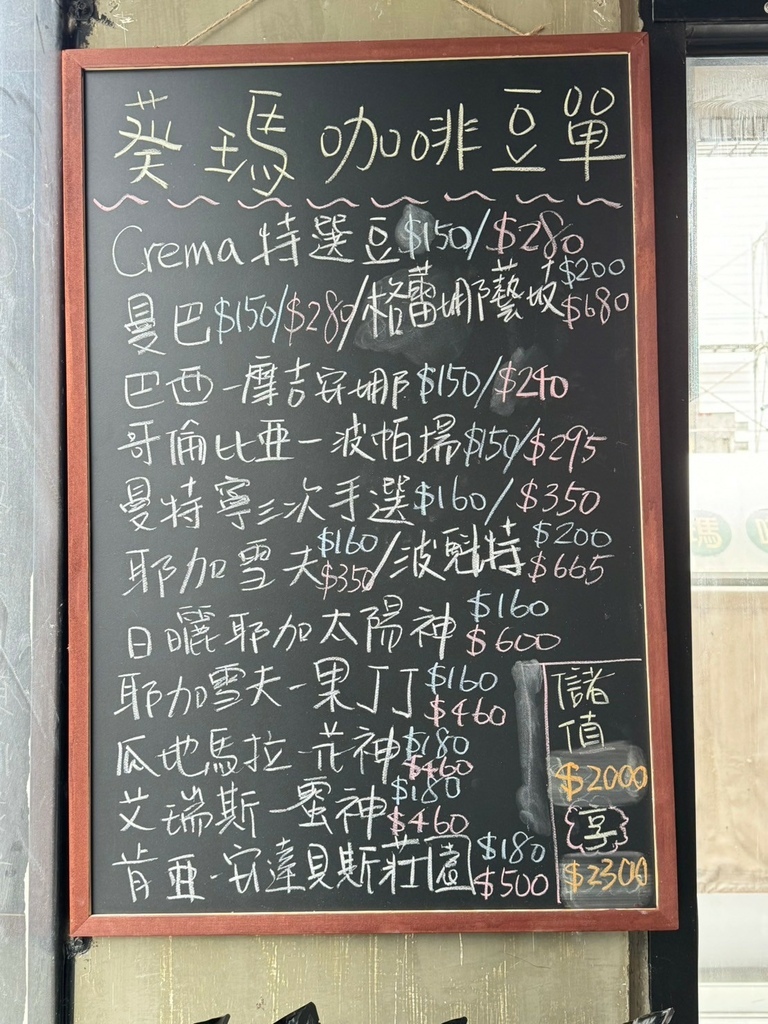 葵瑪咖啡豆單
Crema 特選豆 $150/$280
曼巴 $150/$280/格蕾那藝妓 $200 $680
巴西-摩吉安娜 $150/$240
哥倫比亞-波帕揚 $150/$295
曼特寧三次手選 $160/$350
耶加雪夫 $160 $350/波魁特 $200 $665
日曬耶加太陽神 $160 $600
耶加雪夫-果丁丁 $160 $460
瓜地馬拉-花神 $180 $460
艾瑞斯-蜜神 $180 $460
肯亞-安達貝斯莊園 $180 $500
儲
值
$2000
享
$2300